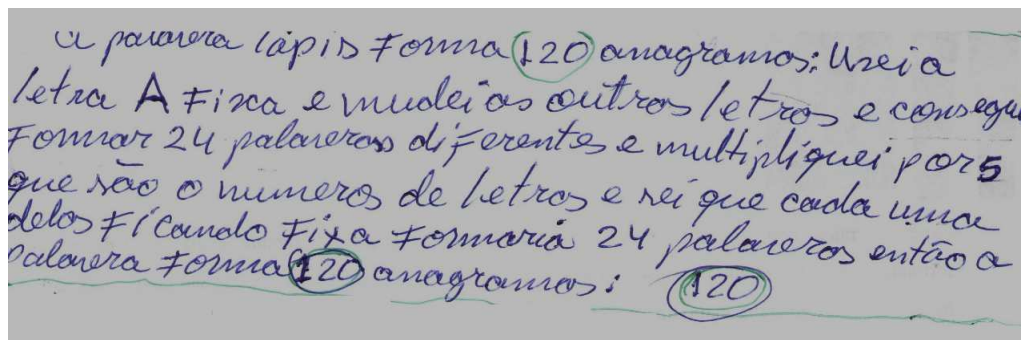 a palavera lápis Forma 120 anagramos: Usei a
letra A Fixa e mudei as outras letras e consegu
Formar 24 palaveras diferentes e multipliquei por 5
que são o numeros de letras e sei que cada uma
delas Ficando Fixa Formaria 24 palaveras então a
Palavera Forma 120 anagramos: 120